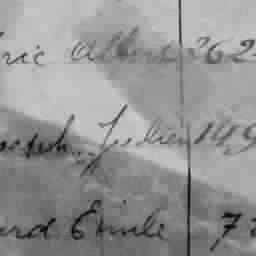 ric Albert 262
oseph Judien 149
ard Emile 72